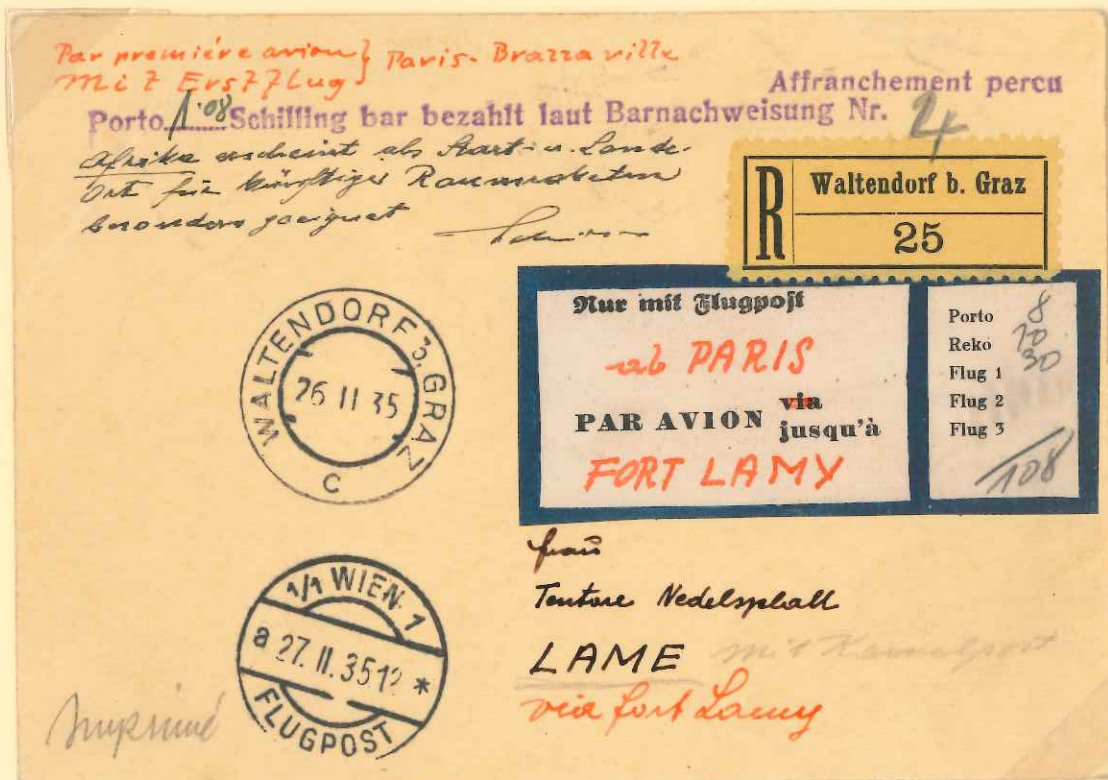 Par première avion } Paris-Brazzaville
Mit Erstflug
Affranchement percu
Porto 1·08 Schilling bar bezahlt laut Barnachweisung Nr. 24
Afrika erscheint als Start- u. Lande-
Ort für künftige Raumraketen
besonders geeignet
R
Waltendorf b. Graz
25
Nur mit Flugpost
ab PARIS
PAR AVION via
jusqu'à
FORT LAMY
Porto 8
Reko 70
Flug 1 30
Flug 2
Flug 3
108
WALTENDORF B. GRAZ
26 II 35
C
1/1 WIEN 1
a 27. II. 35 12 *
FLUGPOST
Frau
LAME mit Kamelpost
via fort Lamy
Imprimé